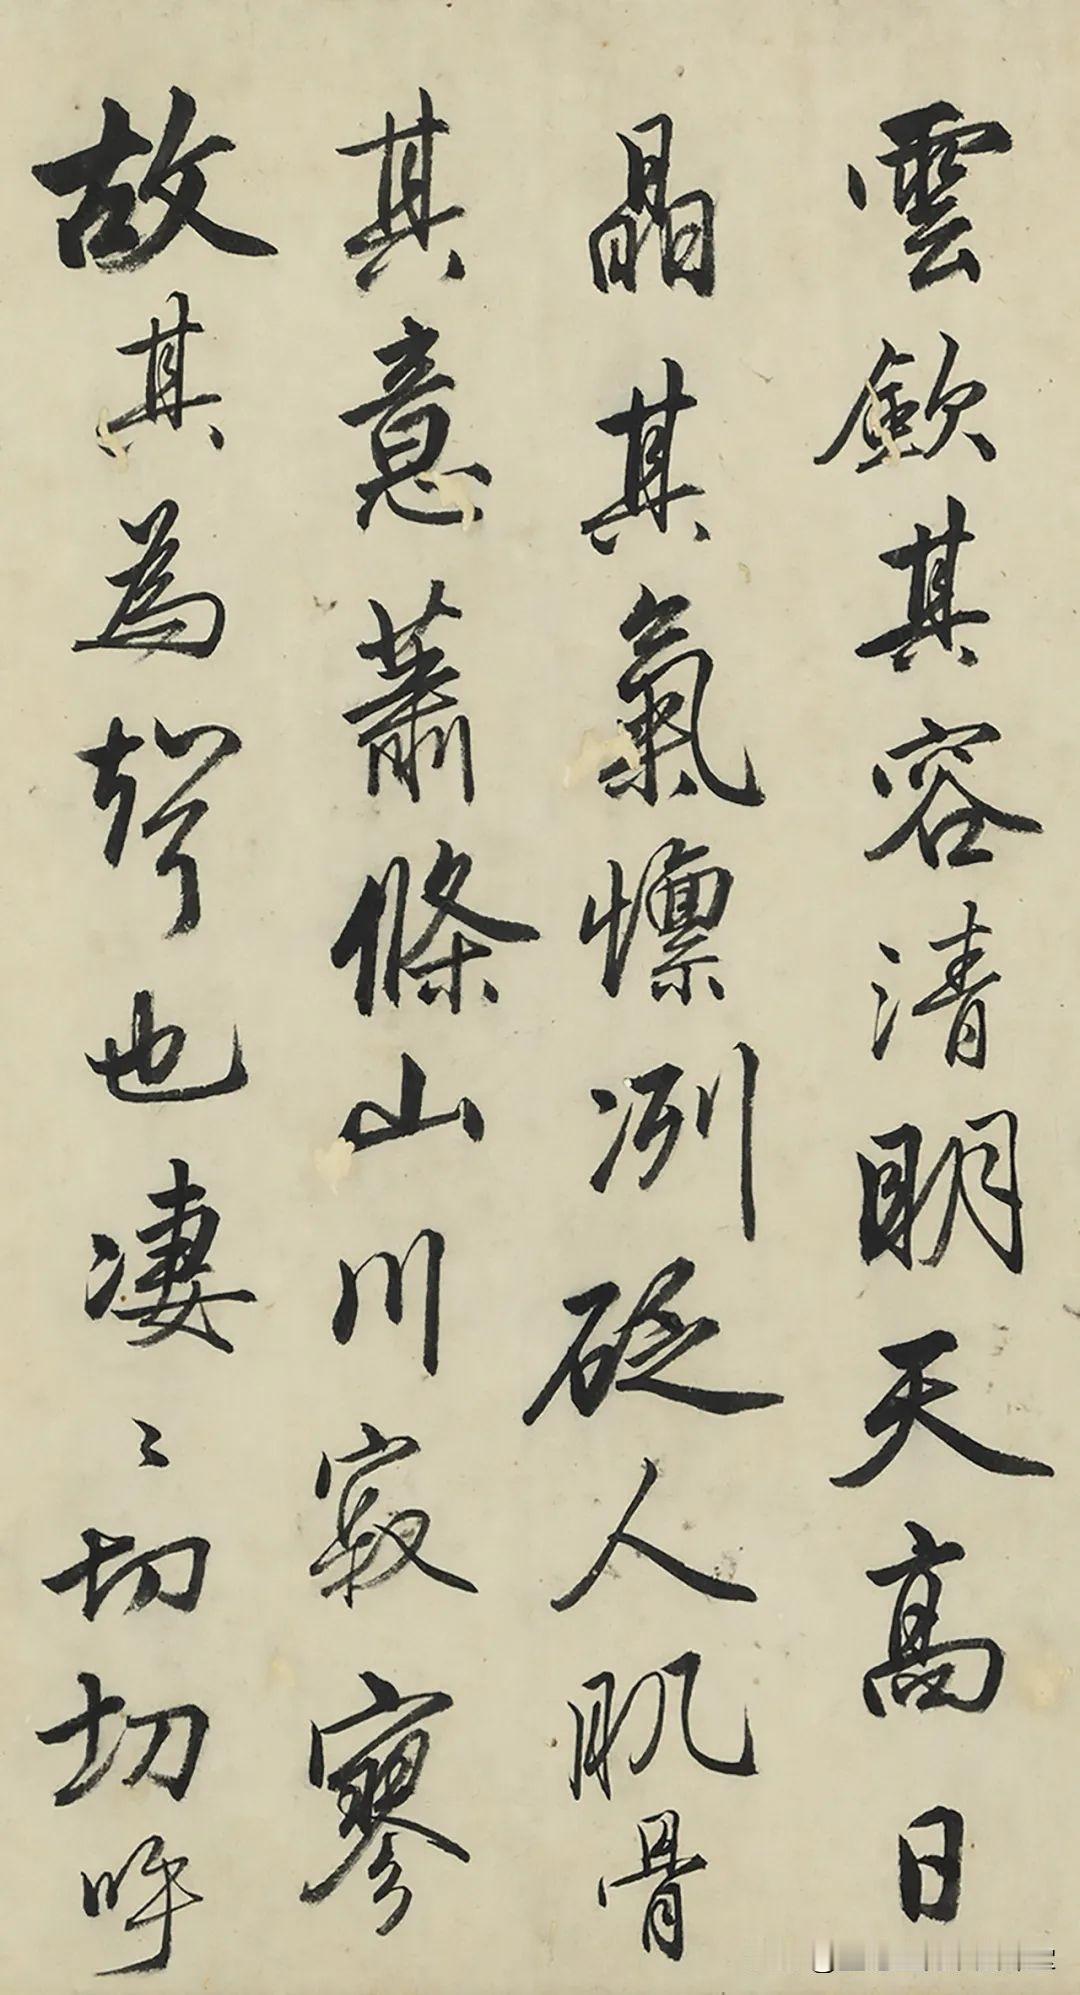 雲歛其容清明天高日
晶其氣慄冽砭人肌骨
其意蕭條山川寂寥
故其為聲也凄〻切切呼